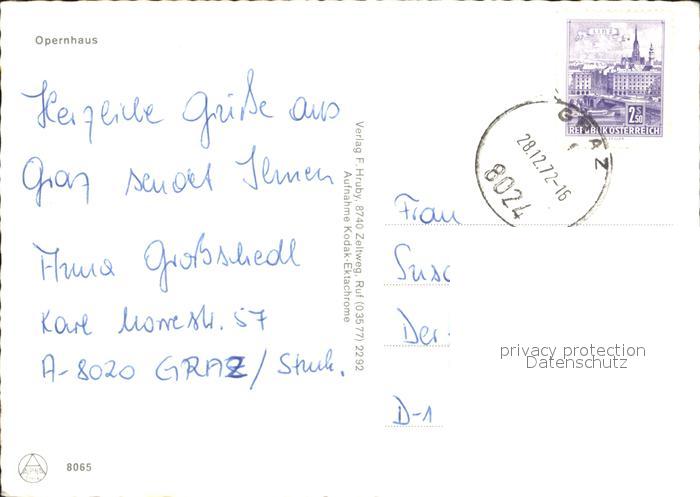 Opernhaus
Herzliche Grüße aus
Graz sendet Ihnen
Anna Großschedl
Karl Morrestr. 57
A-8020 GRAZ/Stmk.
8065
Verlag F. Hruby, 8740 Zeltweg, Ruf (03577) 2292
Aufnahme Kodak-Ektachrome
LINZ
2 S 50
REPUBLIK ÖSTERREICH
GRAZ
28.12.72-16
8024
Frau
Der
D-1
privacy protection
Datenschutz